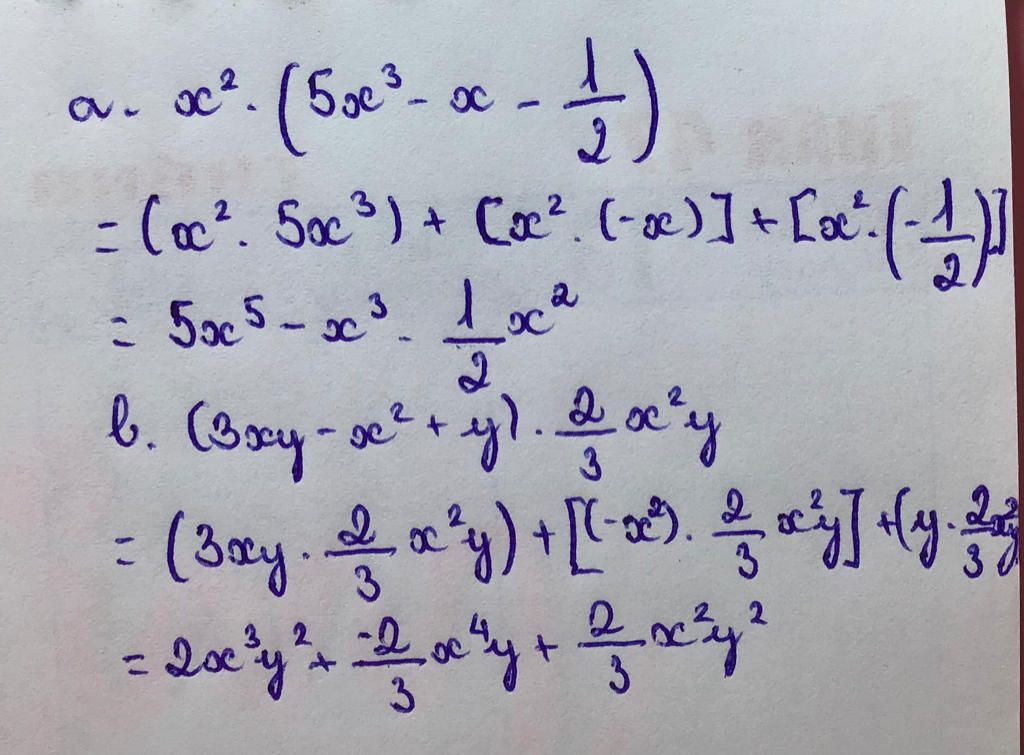 a. x² · (5x³ - x - 1/2)
= (x² · 5x³) + [x² · (-x)] + [x² · (-1/2)]
= 5x⁵ - x³ - 1/2 x²
b. (3xy - x² + y) · 2/3 x²y
= (3xy · 2/3 x²y) + [(-x²) · 2/3 x²y] + (y · 2/3 x²y
= 2x³y² + -2/3 x⁴y + 2/3 x²y²